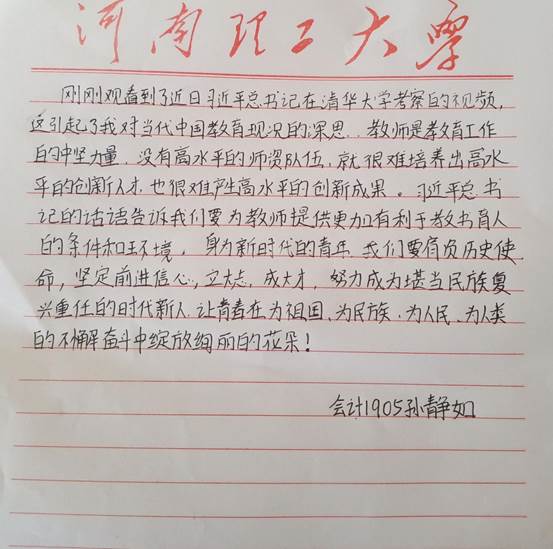 河南理工大学
刚刚观看到了近日习近平总书记在清华大学考察的视频,
这引起了我对当代中国教育现况的深思. 教师是教育工作
的中坚力量, 没有高水平的师资队伍, 就很难培养出高水
平的创新人才, 也很难产生高水平的创新成果。习近平总书
记的话语告诉我们要为教师提供更加有利于教书育人
的条件和环境, 身为新时代的青年, 我们要肩负历史使
命, 坚定前进信心, 立大志, 成大才, 努力成为堪当民族复
兴重任的时代新人, 让青春在为祖国、为民族、为人民、为人类
的不懈奋斗中绽放绚丽的花朵!
会计1905孙静如